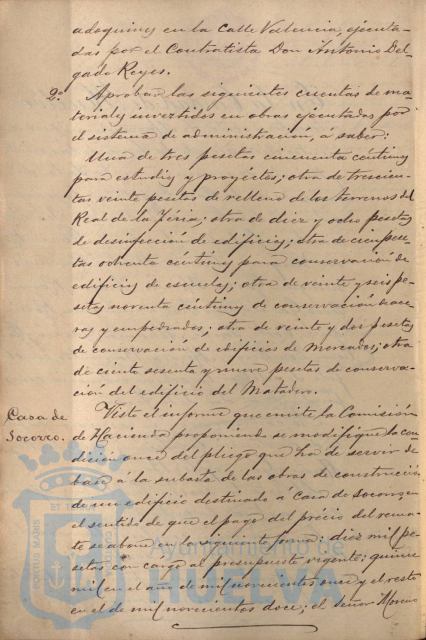 adoquines en la calle Valencia, ejecuta-
das por el Contratista Don Antonio Del-
gado Reyes.
2º Aprobar las siguientes cuentas de ma-
teriales invertidos en obras ejecutadas por
el sistema de administración, á saber:
Una de tres pesetas cincuenta céntimos
para estudios y proyectos; otra de trescien-
tas veinte pesetas de relleno de los terrenos del
Real de la Feria; otra de diez y ocho pesetas
de desinfección de edificios; otra de cien pese-
tas ochenta céntimos para conservación de
edificios de escuelas; otra de veinte y seis pe-
setas noventa céntimos de conservación de ace-
ras y empedrados; otra de veinte y dos pesetas
de conservación de edificios de Mercados; otra
de ciento sesenta y nueve pesetas de conserva-
ción del edificio del Matadero.
Casa de
Socorro.
Visto el informe que emite la Comisión
de Hacienda proponiendo se modifique la con-
dición once del pliego que ha de servir de
base á la subasta de las obras de construcción
de un edificio destinado á Casa de Socorro en
el sentido de que el pago del précio del rema-
te se abone en la siguiente forma: diez mil pe-
setas con cargo al presupuesto vigente; quince
mil en el año de mil novecientos once y el resto
en el de mil novecientos doce; el Señor Moreno
Ayuntamiento de
HUELVA
PORTUS MARIS